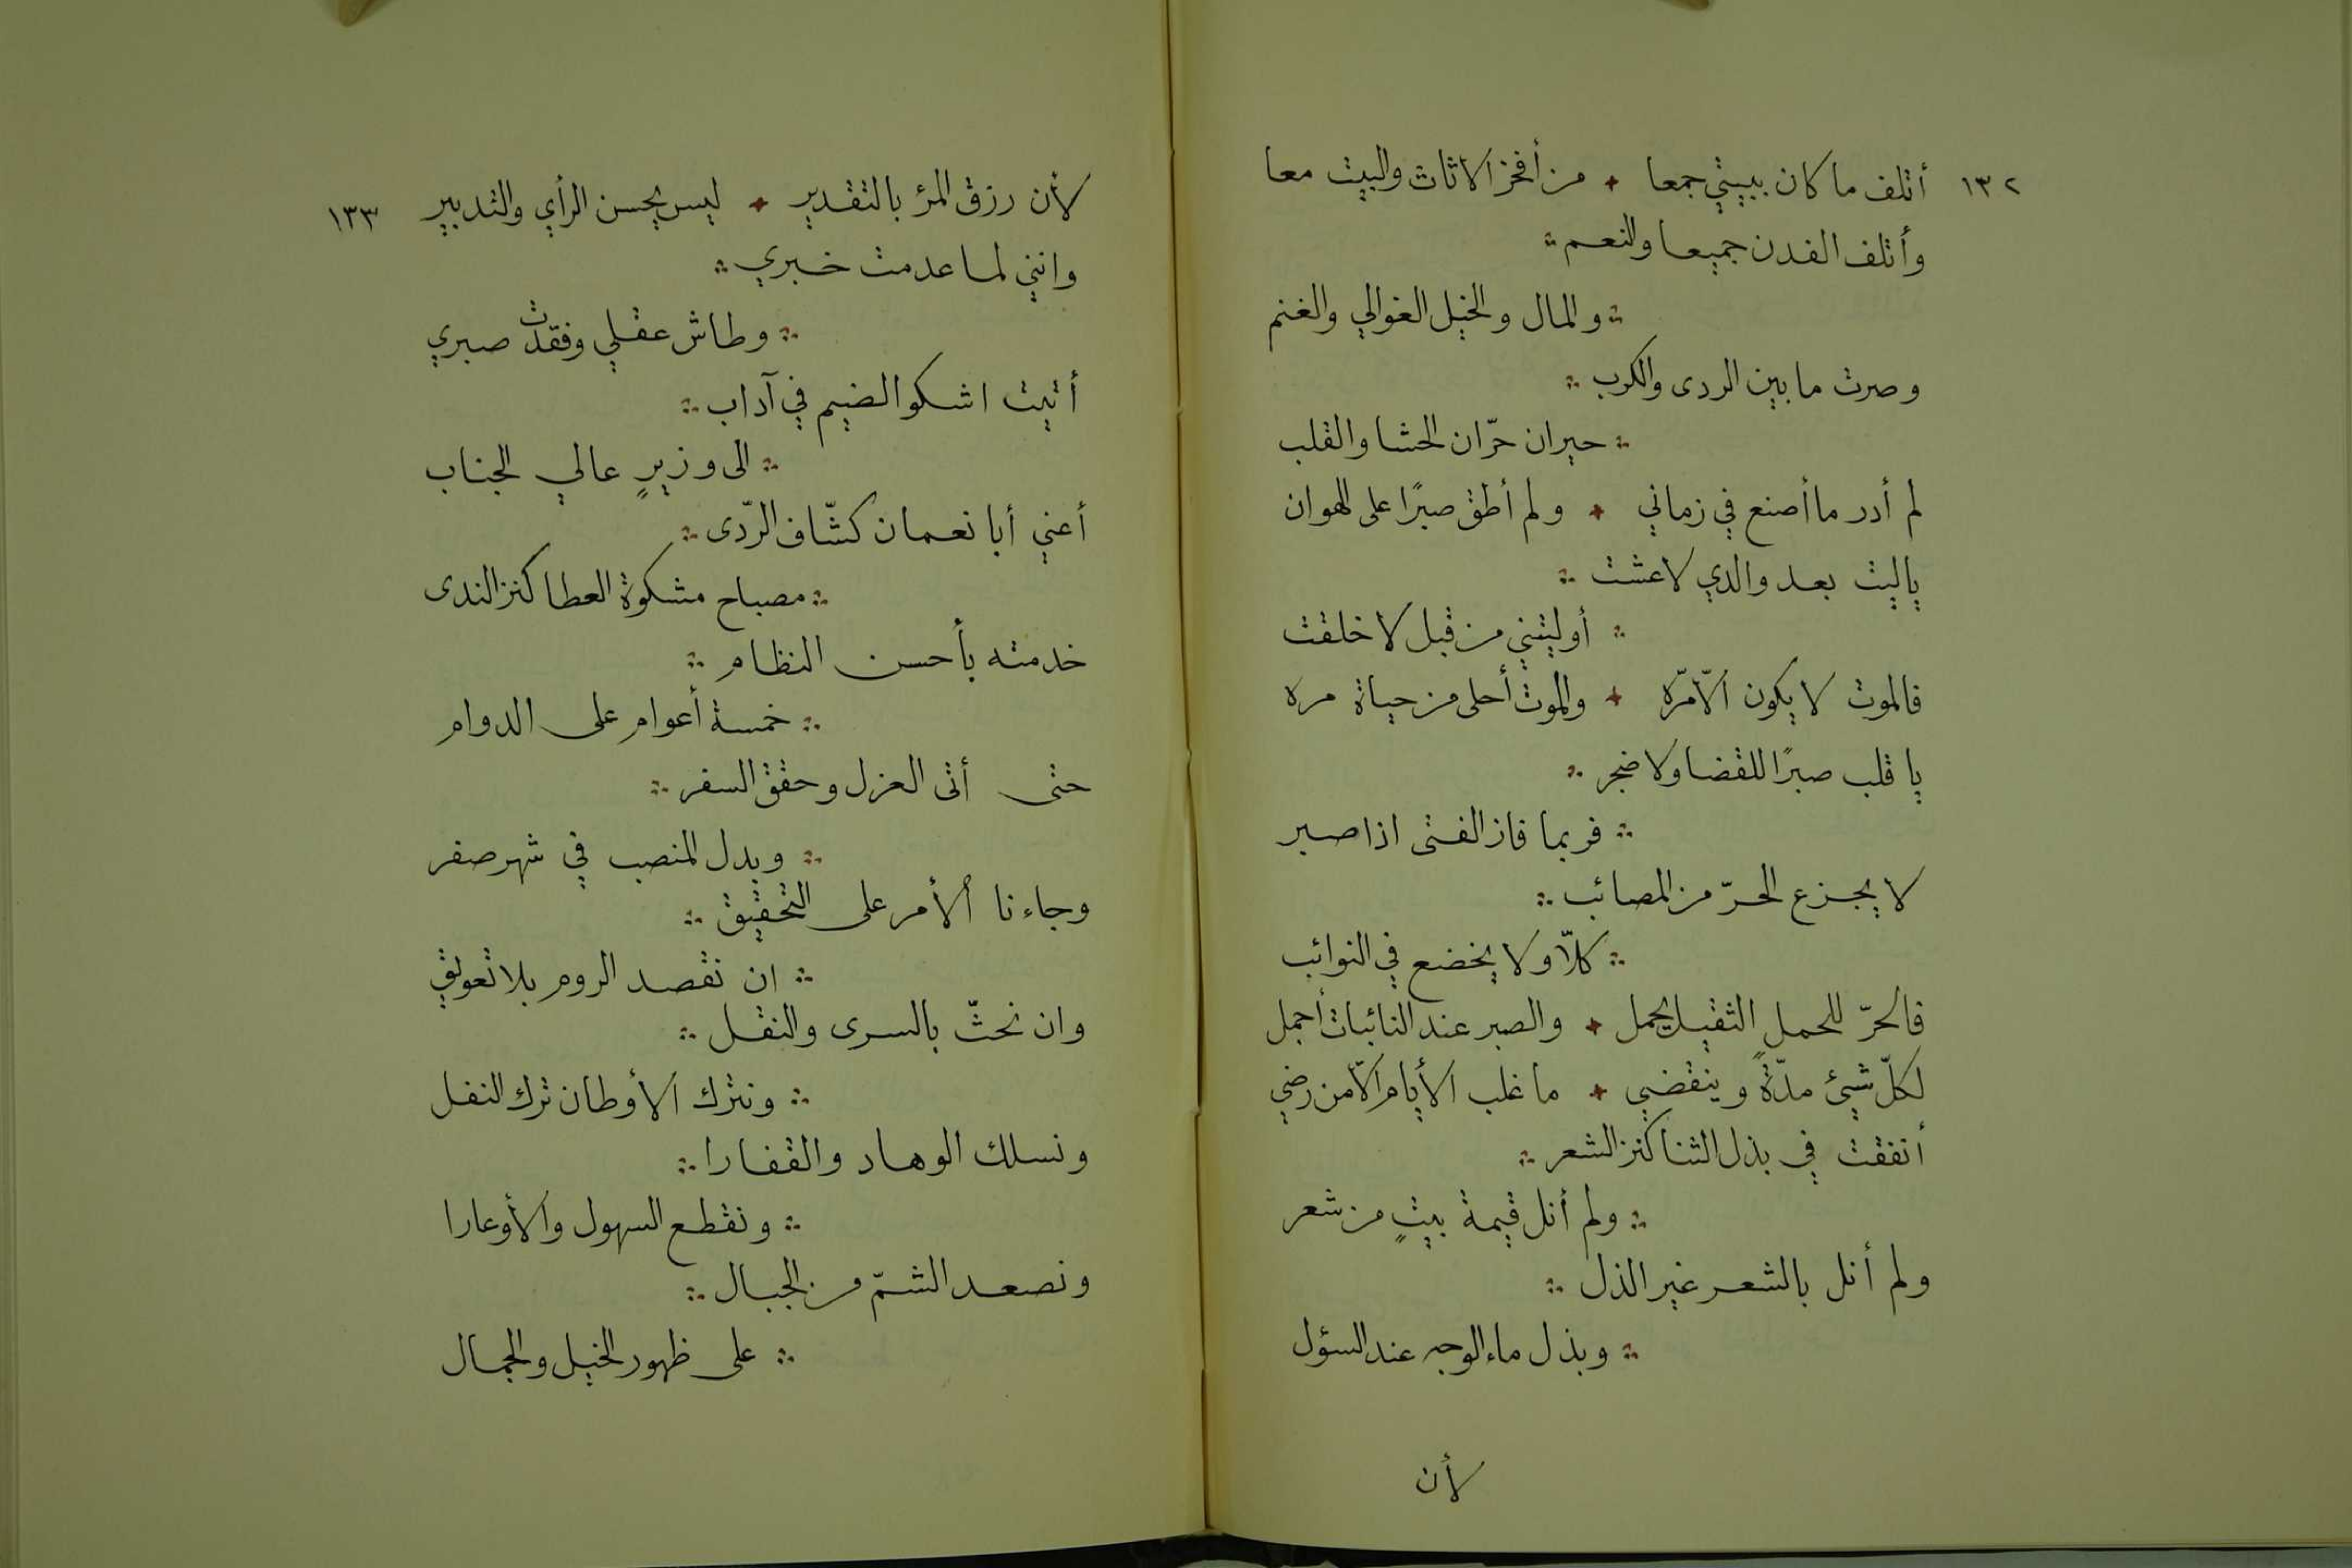 ١٣٢ أتلف ما كان ببيتي جمعا ✦ من أفخر الاثاث والبيت معا
وأتلف الفدن جميعا والنعم ∴
∴ والمال والخيل الغوالي والغنم
وصرت ما بين الردى والكرب ∴
∴ حيران حرّان الحشا والقلب
لم أدر ما أصنع في زماني ✦ ولم أطق صبرًا على الهوان
ياليت بعد والدي لا عشت ∴
∴ أوليتني من قبل لا خلقت
فالموت لا يكون الاّ مرّه ✦ والموت أحلى من حياة مره
يا قلب صبرًا للقضا ولا ضجر ∴
∴ فربما فاز الفتى اذا صبر
لا يجزع الحرّ من المصائب ∴
∴ كلاّ ولا يخضع في النوائب
فالحرّ للحمل الثقيل يحمل ✦ والصبر عند النائبات أجمل
لكلّ شيئ مدّةً وينقضي ✦ ما غلب الأيام الاّ من رضي
أنفقت في بذل الثنا كنز الشعر ∴
∴ ولم أنل قيمة بيتٍ من شعر
ولم أنل بالشعر غير الذل ∴
∴ وبذل ماء الوجه عند السؤل
لأن
لأن رزق المرؤ بالتقدير ✦ ليس بحسن الرأي والتدبير ١٣٣
وانني لما عدمت خبري ∴
∴ وطاش عقلي وفقدت صبري
أتيت اشكو الضيم في آداب ∴
∴ الى وزيرٍ عالي الجناب
أعني أبا نعمان كشّاف الرّدى ∴
∴ مصباح مشكوة العطا كنز الندى
خدمته بأحسن النظام ∴
∴ خمسة أعوام على الدوام
حتى أتى العزل وحقق السفر ∴
∴ وبدل المنصب في شهر صفر
وجاءنا الأمر على التحقيق ∴
∴ ان نقصد الروم بلا تعويق
وان نحثّ بالسرى والنقل ∴
∴ ونترك الأوطان ترك النفل
ونسلك الوهاد والقفارا ∴
∴ ونقطع السهول والأوعارا
ونصعد الشمّ من الجبال ∴
∴ على ظهور الخيل والجمال